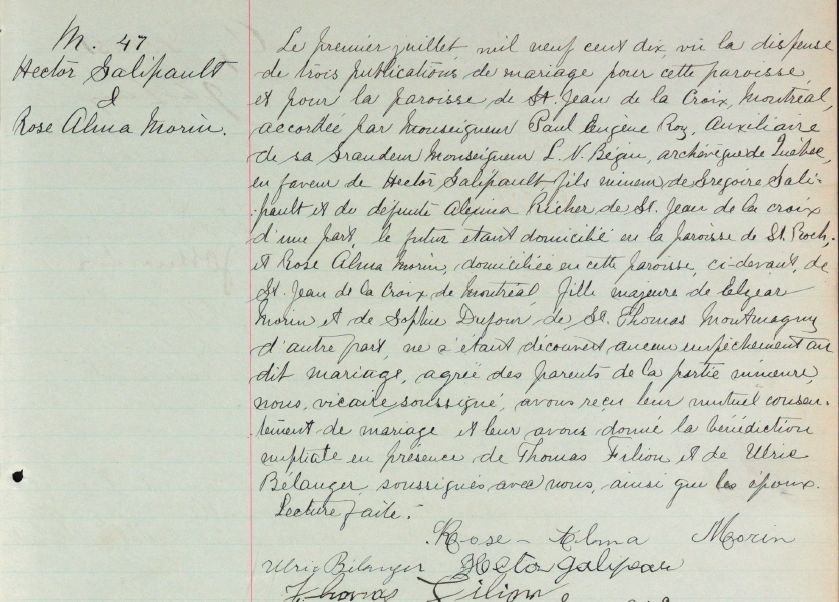 M. 47
Hector Galipault
&
Rose Alma Morin.
Le premier juillet, mil neuf cent dix, vu la dispense
de trois publications de mariage pour cette paroisse,
et pour la paroisse de St. Jean de la Croix, Montréal
accordée par Monseigneur Paul Eugène Roy, Auxiliaire
de sa Grandeur Monseigneur L. N. Bégin, archevêque de Québec,
en faveur de Hector Galipault fils mineur de Grégoire Gali-
pault et de défunte Alexina Richer de St. Jean de la croix
d'une part, le futur étant domicilié en la paroisse de St. Roch,
et Rose Alma Morin, domiciliée en cette paroisse, ci-devant, de
St. Jean de la Croix de Montréal, fille majeure de Elzear
Morin et de Sophie Dufour, de St. Thomas Montmagny
d'autre part, ne s'étant découvert aucun empêchement au
dit mariage, agréé des parents de la partie mineure,
nous, vicaire, soussigné, avons reçu leur mutuel consen-
tement de mariage et leur avons donné la bénédiction
nuptiale en présence de Thomas Filion et de Ulric
Bélanger, soussignés avec nous, ainsi que les époux.
Lecture faite.
Rose-Alma Morin
Ulric Bélanger Hector galipau
Thomas Filion